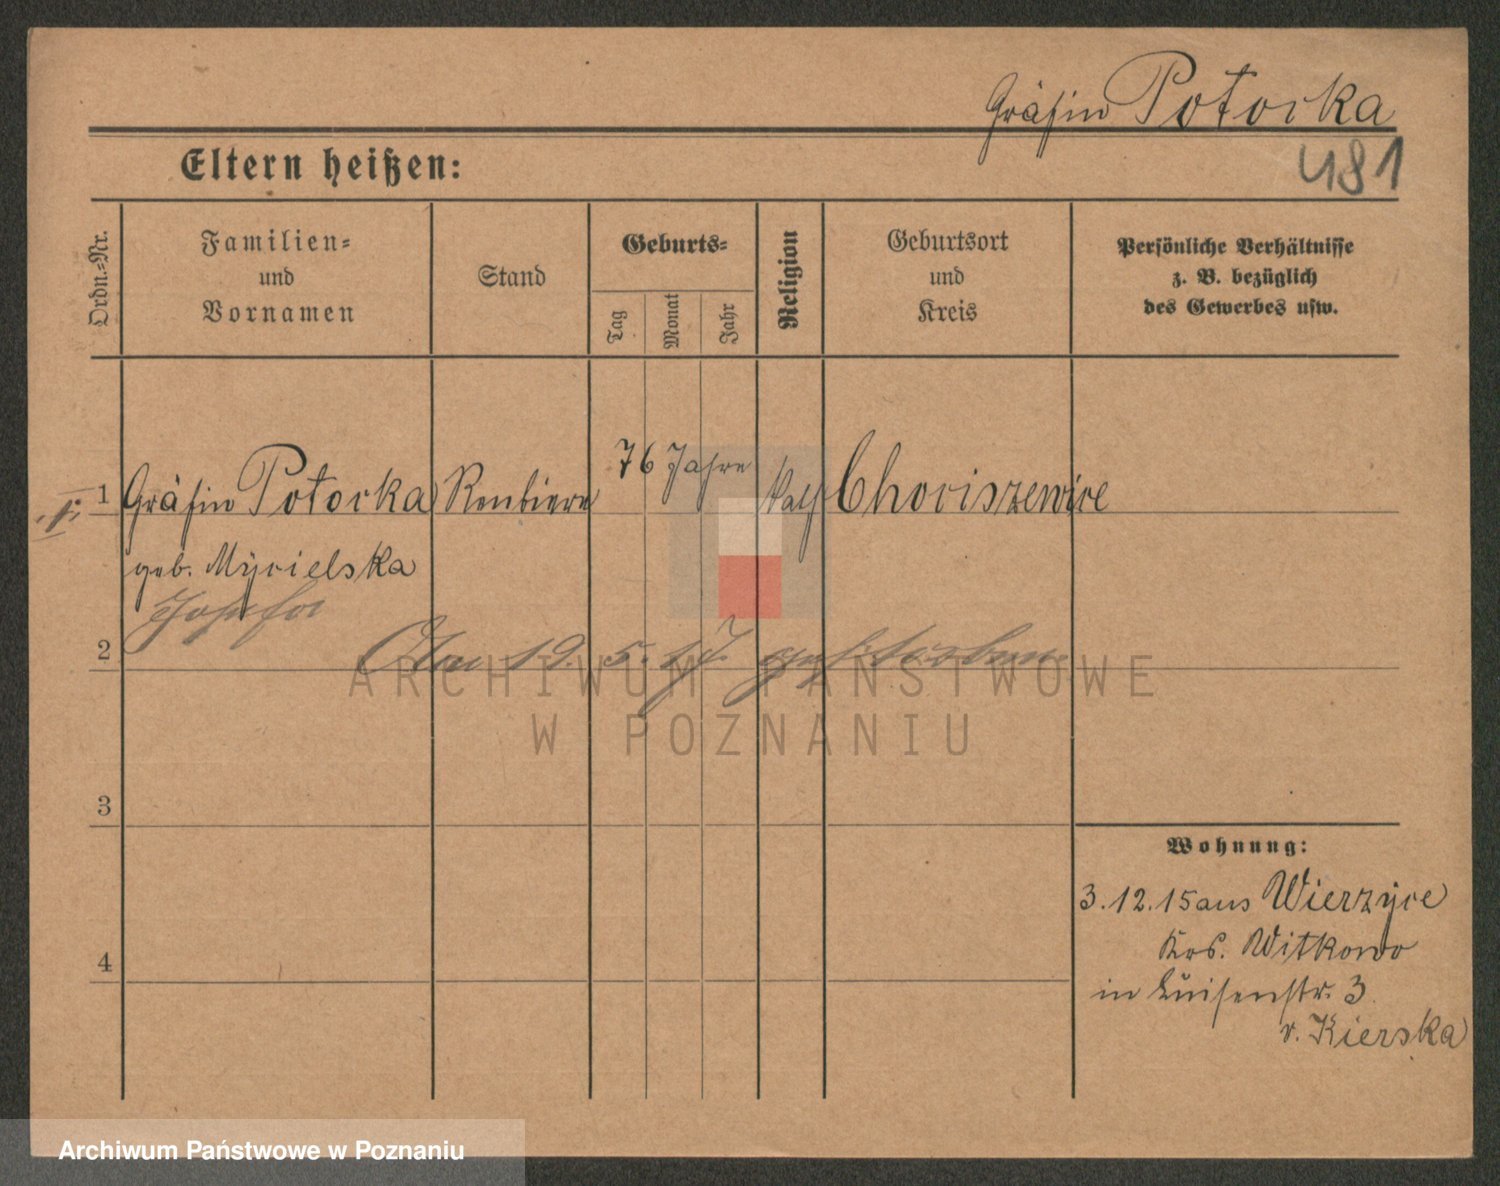 Gräfin Potocka
481
Eltern heißen:
Ordn.=Nr.
Familien=
und
Vornamen
Stand
Geburts=
Tag
Monat
Jahr
Religion
Geburtsort
und
Kreis
Persönliche Verhältnisse
z. B. bezüglich
des Gewerbes usw.
76 Jahre
1 Gräfin Potocka Rentiere kath Choriszewice
geb. Mycielska
Josefa
2 Am 19. 5. 17. gestorben
ARCHIWUM PAŃSTWOWE
W POZNANIU
3
Wohnung:
3.12.15 aus Wierzyce
Krs. Witkowo
4
in Luisenstr. 3.
v. Kierska
Archiwum Państwowe w Poznaniu